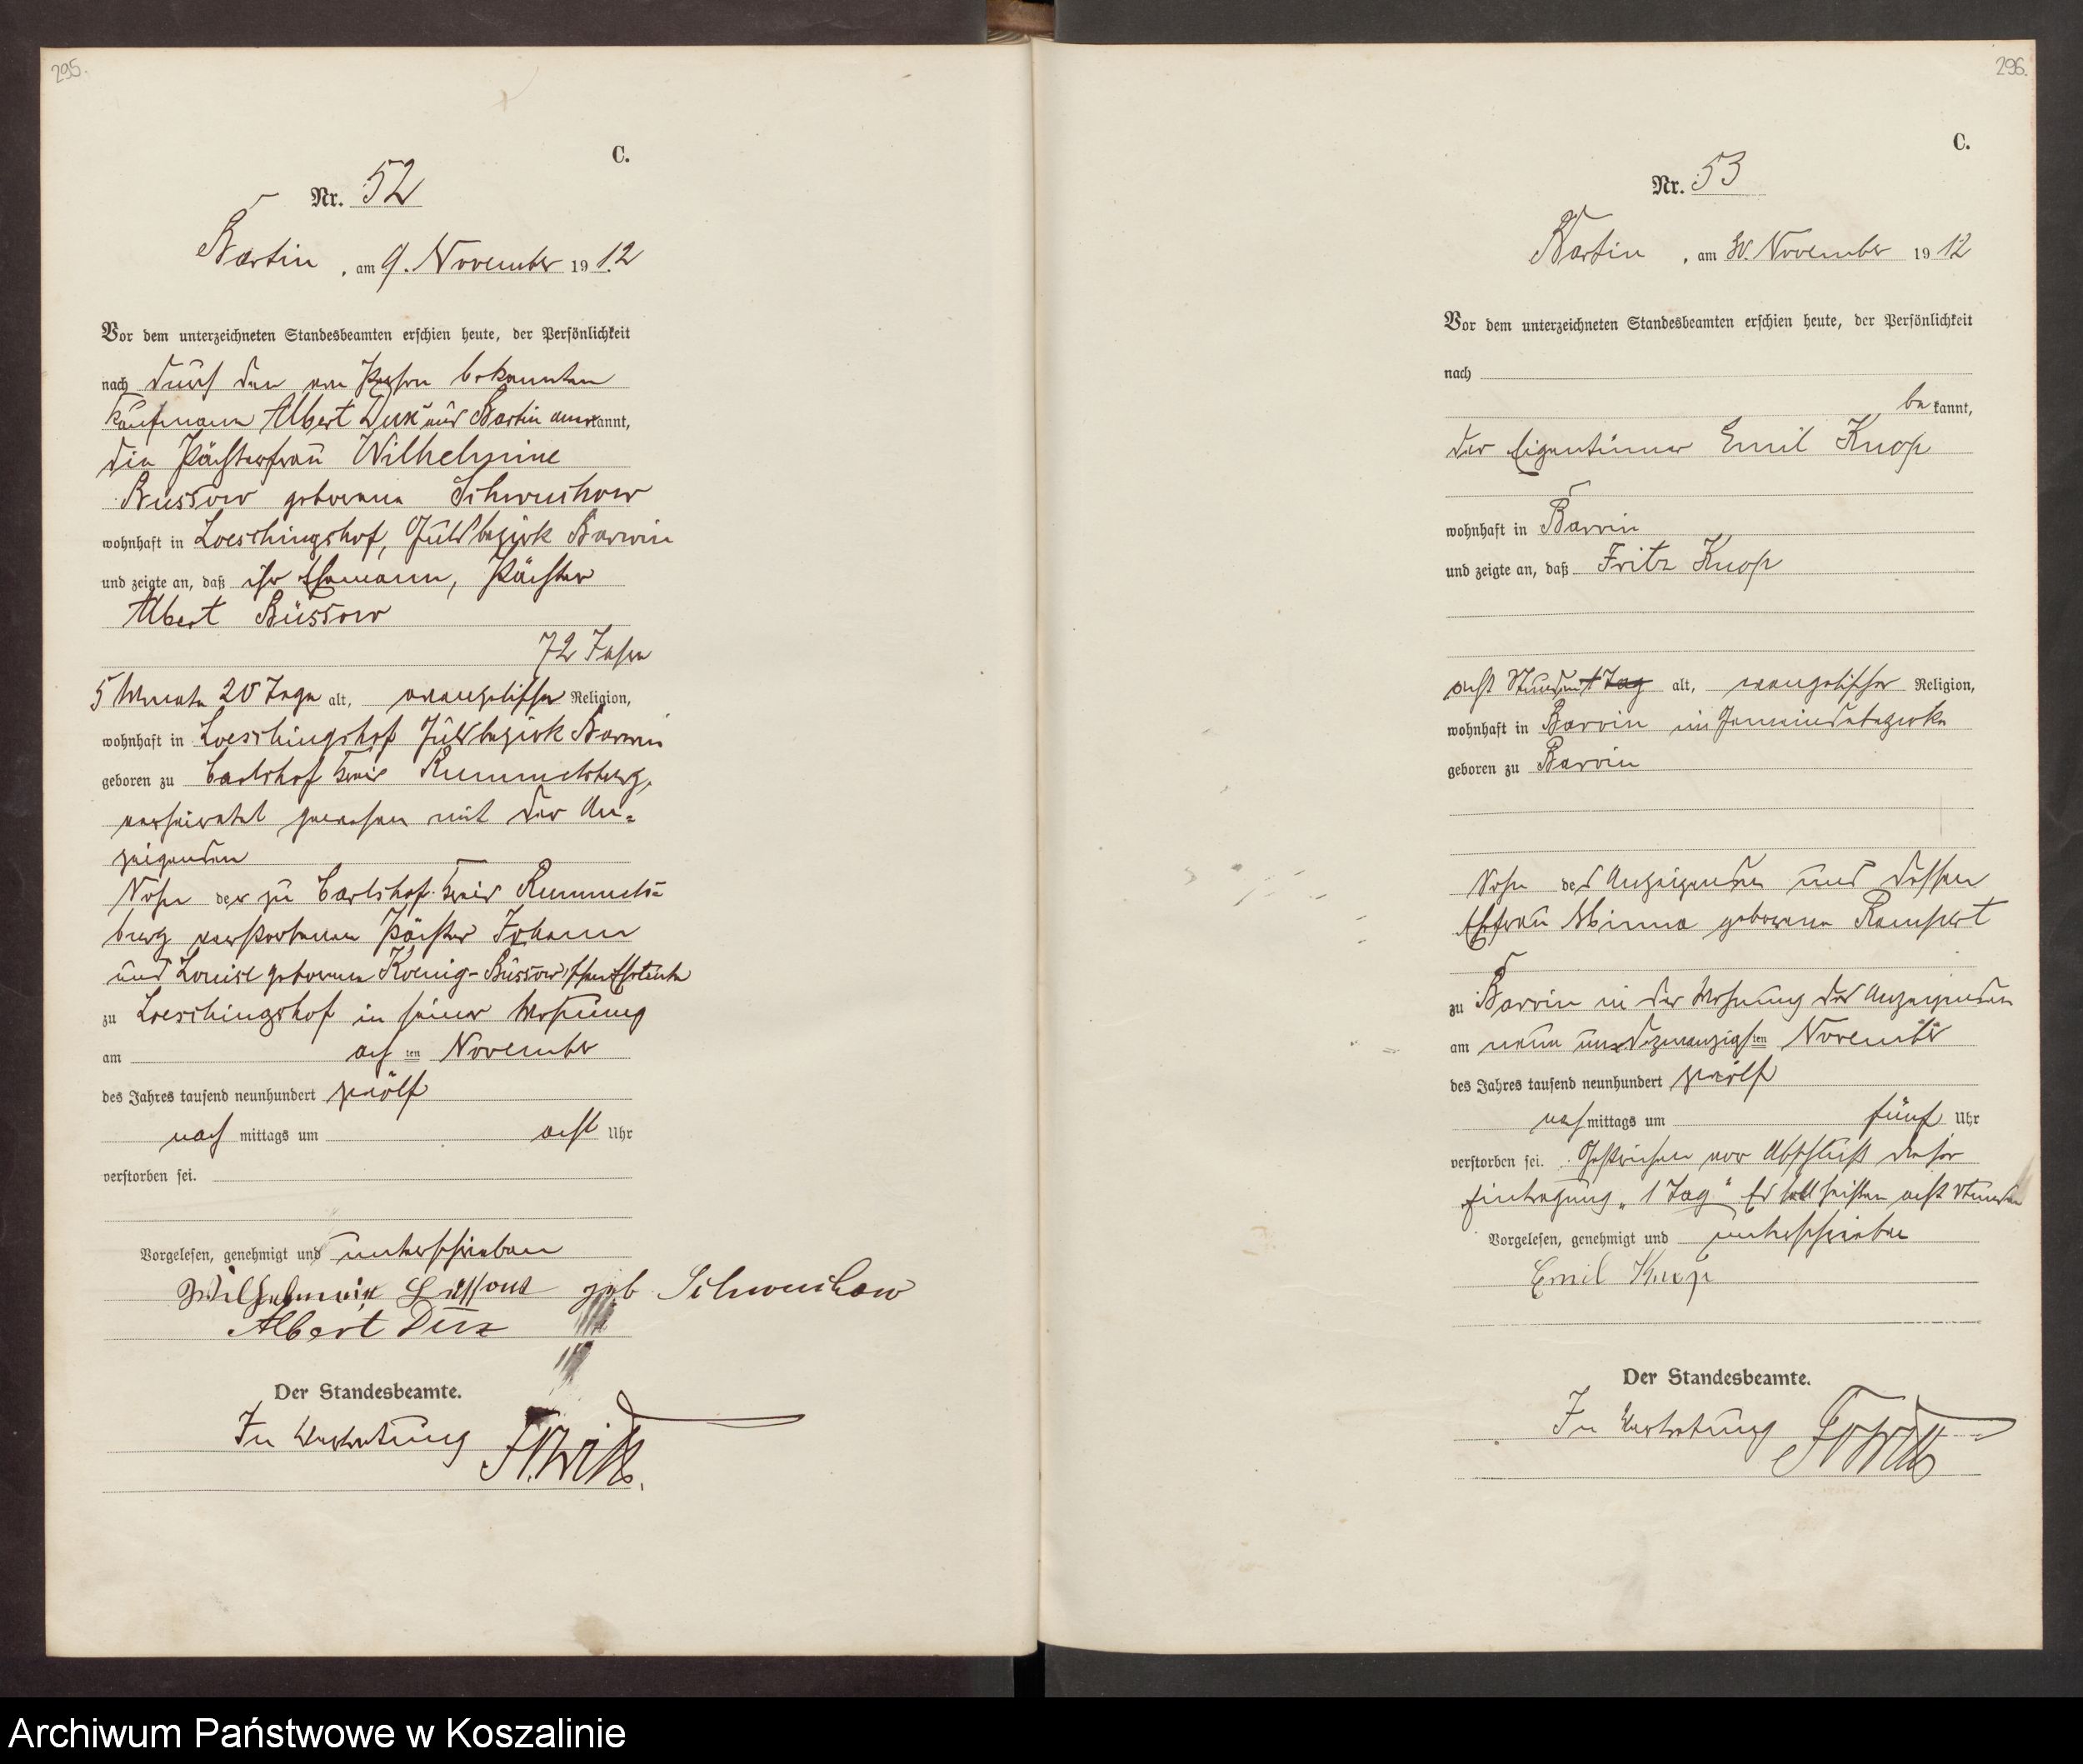 295.
C.
Nr. 52
Bartin, am 9. November 1912
Vor dem unterzeichneten Standesbeamten erschien heute, der Persönlichkeit
nach durch den von Person bekannten
Kaufmann Albert aus Bartin anerkannt,
die Pächterfrau Wilhelmine
Büssow geborene Schwuchow
wohnhaft in Loeschingshof, Gutsbezirk Barwin
und zeigte an, daß ihr Ehemann, Pächter
Albert Büssow
72 Jahre
5 Monate 20 Tage alt, evangelischer Religion,
wohnhaft in Loeschingshof Gutsbezirk Barwin
geboren zu Carlshof Kreis Rummelsburg,
verheiratet gewesen mit der An-
zeigenden
Sohn der zu Carlshof Kreis Rummels-
burg verstorbenen Pächter Johann
und Louise geborenen Koenig-Büssow'schen Eheleute
zu Loeschingshof in seiner Wohnung
am achten November
des Jahres tausend neunhundert zwölf
nachmittags um acht Uhr
verstorben sei.
Vorgelesen, genehmigt und unterschrieben
Wilhelmine Büssow geb Schwuchow
Albert
Der Standesbeamte.
In Vertretung
296.
C.
Nr. 53
Bartin, am 30. November 1912
Vor dem unterzeichneten Standesbeamten erschien heute, der Persönlichkeit
nach
bekannt,
der Eigentümer Emil Knop
wohnhaft in Barvin
und zeigte an, daß Fritz Knop
acht Stunden 1 Tag alt, evangelischer Religion,
wohnhaft in Barvin im Gemeindebezirke
geboren zu Barvin
Sohn des Anzeigenden und dessen
Ehefrau Minna geborene Ramfert
zu Barvin in der Wohnung des Anzeigenden
am neun und zwanzigsten November
des Jahres tausend neunhundert zwölf
nachmittags um fünf Uhr
verstorben sei. Gestrichen vor Abschluß dieser
Eintragung „1 Tag" Es soll heißen acht Stunden
Vorgelesen, genehmigt und unterschrieben
Emil Knop
Der Standesbeamte.
In Vertretung
Archiwum Państwowe w Koszalinie